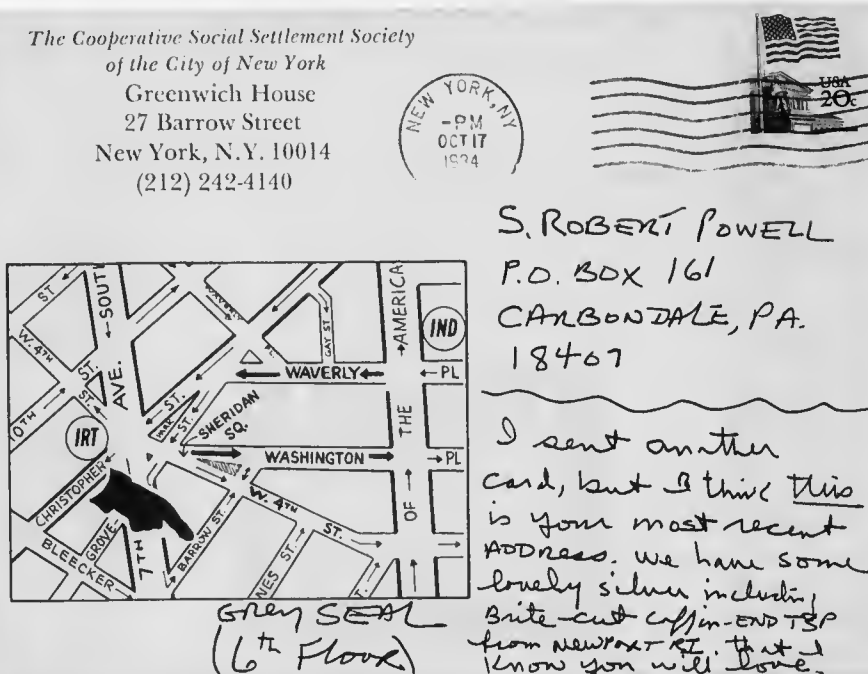 The Cooperative Social Settlement Society
of the City of New York
Greenwich House
27 Barrow Street
New York, N.Y. 10014
(212) 242-4140
NEW YORK, NY
-PM
OCT 17
1984
USA
20c
S. ROBERT POWELL
P.O. BOX 161
CARBONDALE, PA.
18407
I sent another
card, but I think this
is your most recent
ADDRESS. We have some
lovely silver including
Brite-cut coffin-END TSP
from NEWPORT RI. that I
know you will love.
ST.
W. 4TH
ST.
10TH
ST.
←SOUTH
AVE.
WAVERLY
PL.
GAY ST.
→AMERICA
IND
WAVERLY
←PL
ST.
ST.
SHERIDAN
SQ.
IRT
THE
WASHINGTON
→PL
CHRISTOPHER
GROVE
BLEECKER
7TH
BARROW ST.
W. 4TH
ST.
OF
NES ST.
ST.
GREY SEAL
(6th Floor)